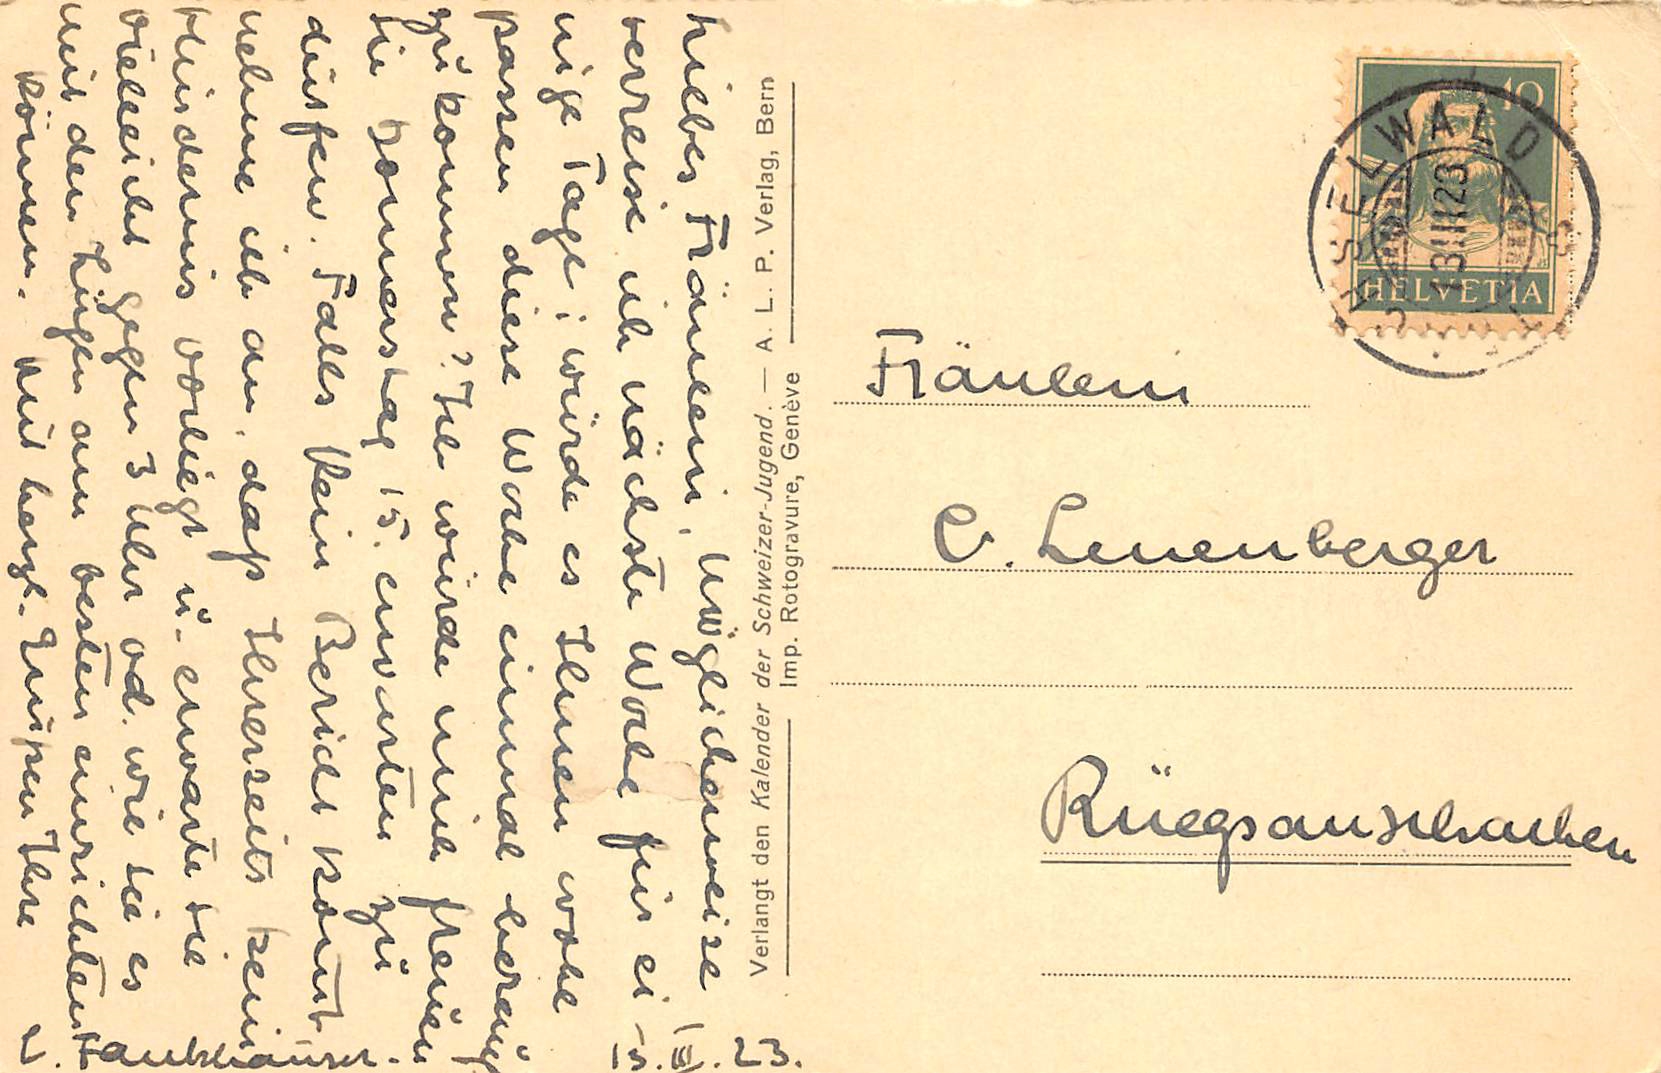 Liebes Fräulein, Möglicherweise
verreise ich nächste Woche für ei-
nige Tage; würde es Ihnen wohl
passen diese Woche einmal herauf
zu kommen? Ich würde mich freuen
Sie Donnerstag 15. erwarten zu
dürfen. Falls kein Bericht kommt
nehme ich an, dass Ihrerseits kein
Hindernis vorliegt u. erwarte Sie
vielleicht gegen 3 Uhr od. wie Sie es
mit den Zügen am besten einrichten
können. Mit herzl. Grüssen Ihre
Fankhauser.
23.
Verlangt den Kalender der Schweizer-Jugend. — A. L. P. Verlag, Bern
Imp. Rotogravure, Genève
10
HELVETIA
HASELWALD
Fräulein
Leuenberger
Rüegsauschachen